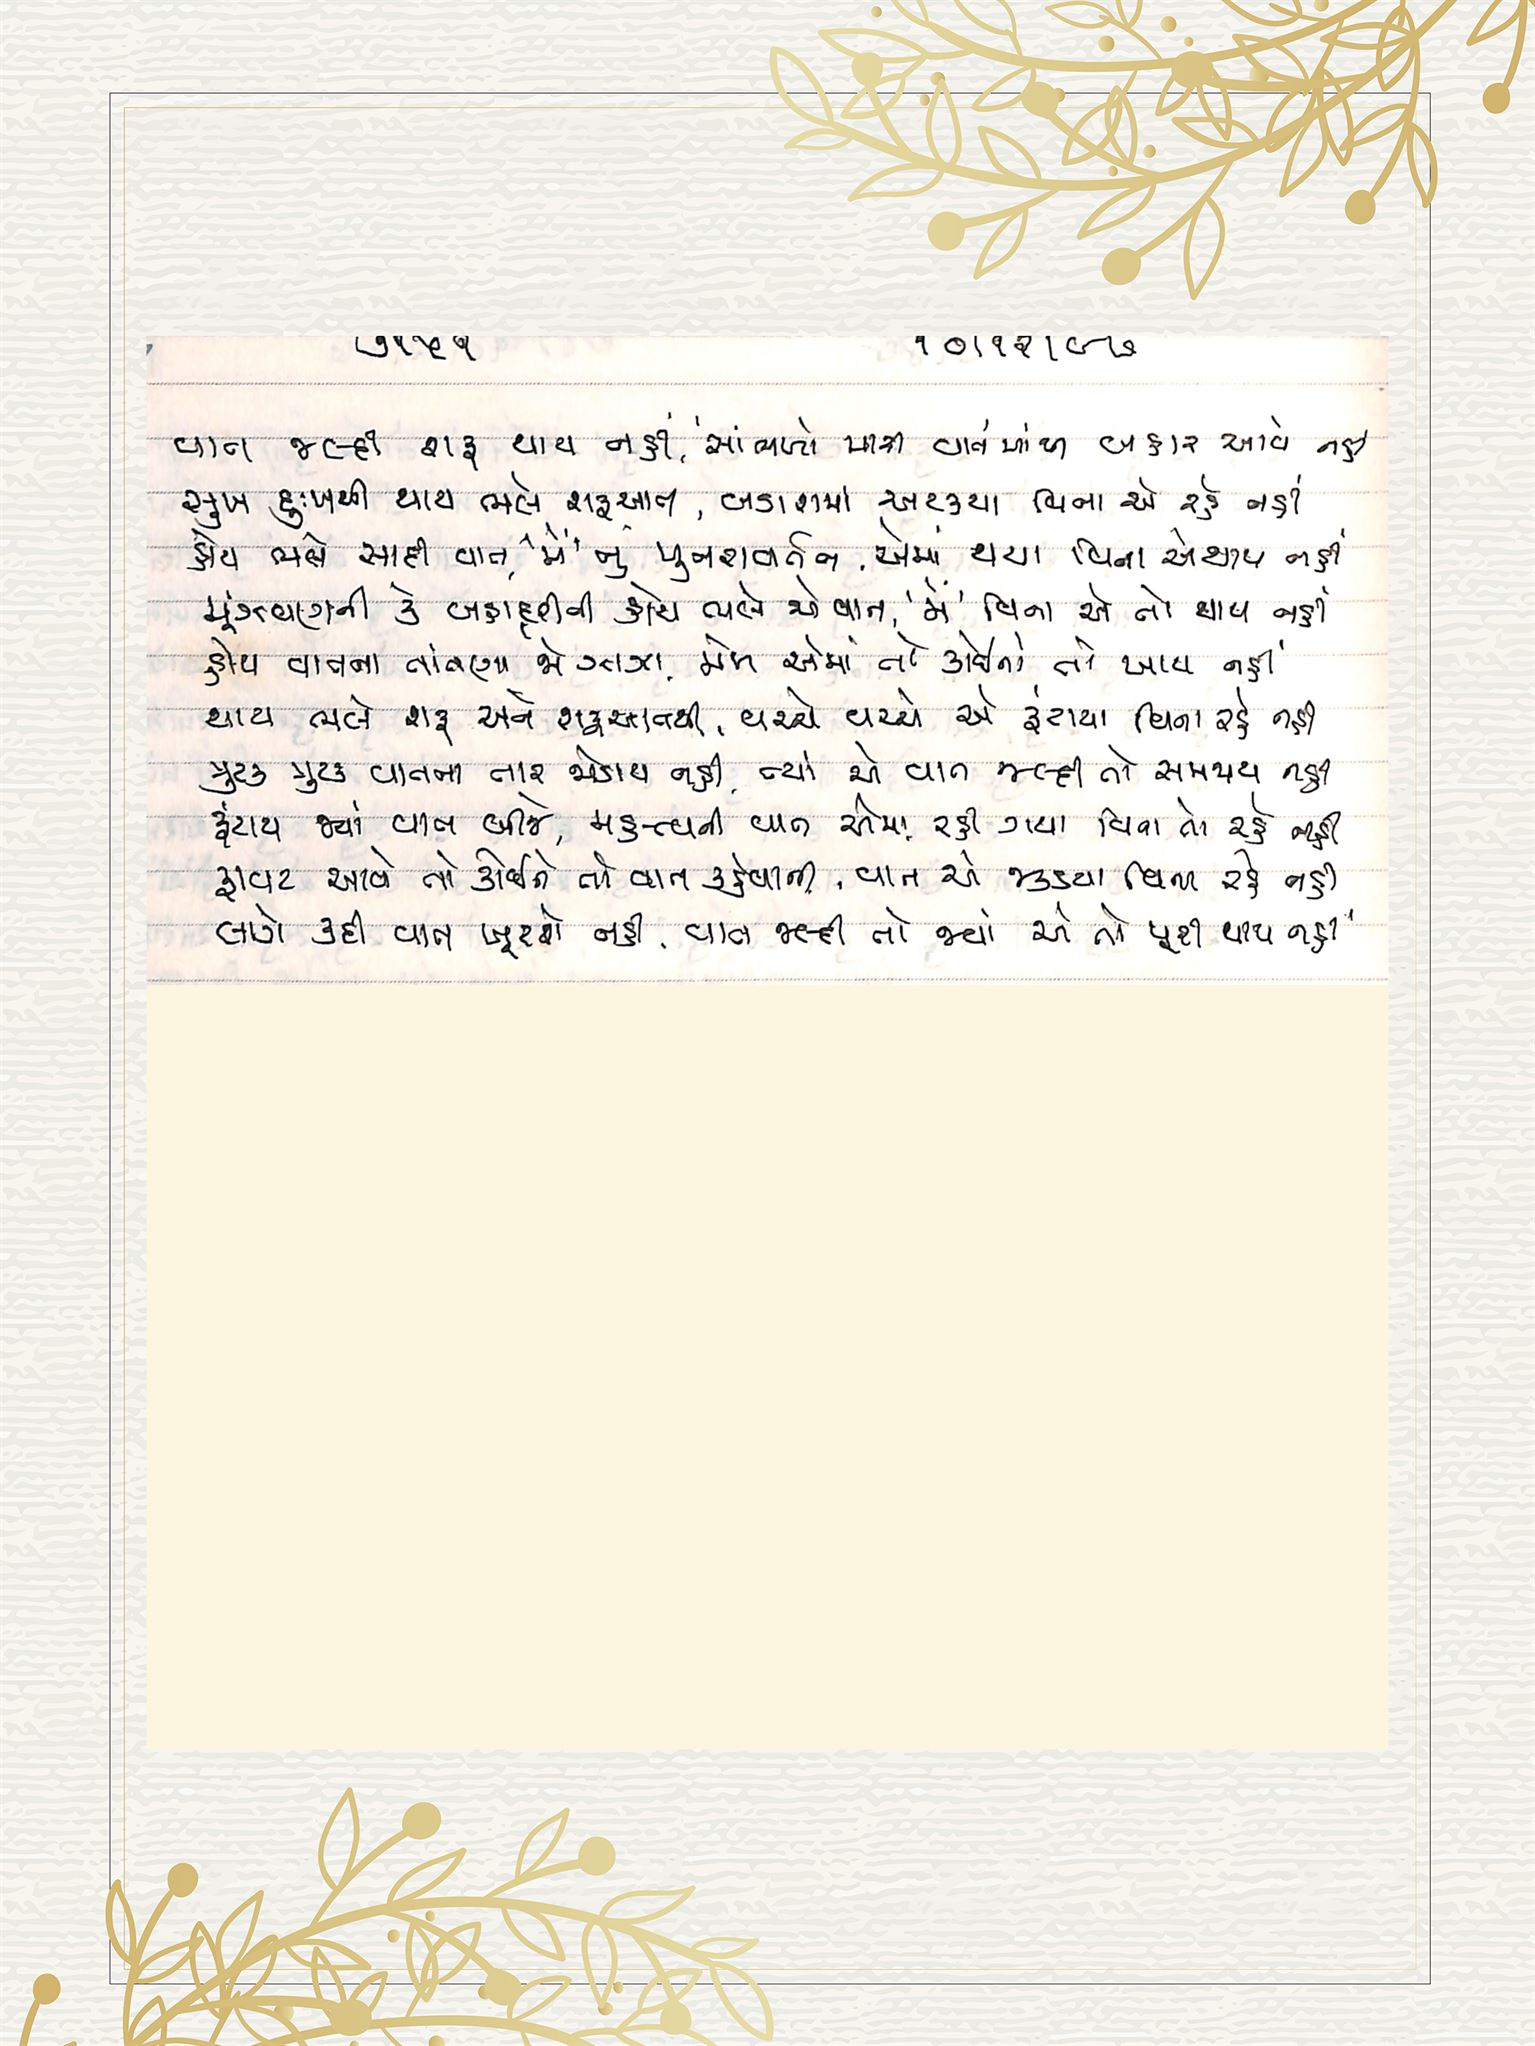 ૭૧૫૧ ૧૦/૧૨/૯૭
વાત જલ્દી શરૂ થાય નહીં, સાંભળો મારી વાત માં બહાર આવે નહીં
સુખ દુઃખથી થાય ભલે શરૂઆત, બડાશમાં અટક્યા વિના એ રહે નહીં
હોય ભલે સાદી વાત, 'મેં' નું પુનરાવર્તન, એમાં થયા વિના એ થાય નહીં
મૂંઝવણની કે બહાદૂરીની હોય ભલે એ વાત, 'મેં' વિના એ તો થાય નહીં
હોય વાતના તાંતણા મેળ એમાં તો કોઈનો તો ખાય નહીં
થાય ભલે શરૂ અને શરૂઆતથી, વચ્ચે વચ્ચે એ ફંટાયા વિના રહે નહીં
ત્રુટક ત્રુટક વાતના તાર જોડાય નહીં, ત્યાં એ વાત જલ્દી તો સમજાય નહીં
ફંટાય જ્યાં વાત બીજે, મહત્ત્વની વાત એમાં રહી ગયા વિના તો રહે નહીં
ફાવટ આવે તો કોઈને તો વાત કહેવાની, વાત એ જકડયા વિના રહે નહીં
લાગે કદી વાત ખૂટશે નહીં, વાત જલ્દી તો જ્યાં એ તો પૂરી થાય નહીં